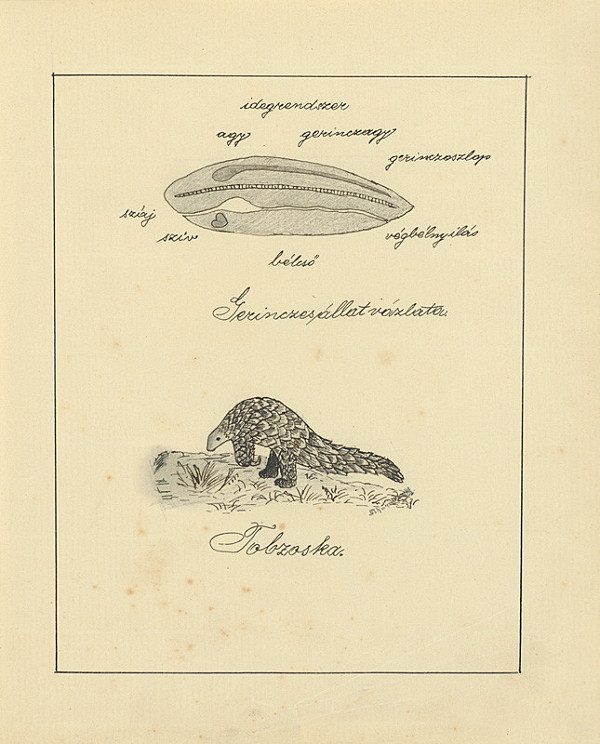 idegrendszer
agy gerinczagy
gerinczoszlop
száj
szív
végbélnyilás
bélcső
Gerinczes állat vázlata.
Tobzoska.